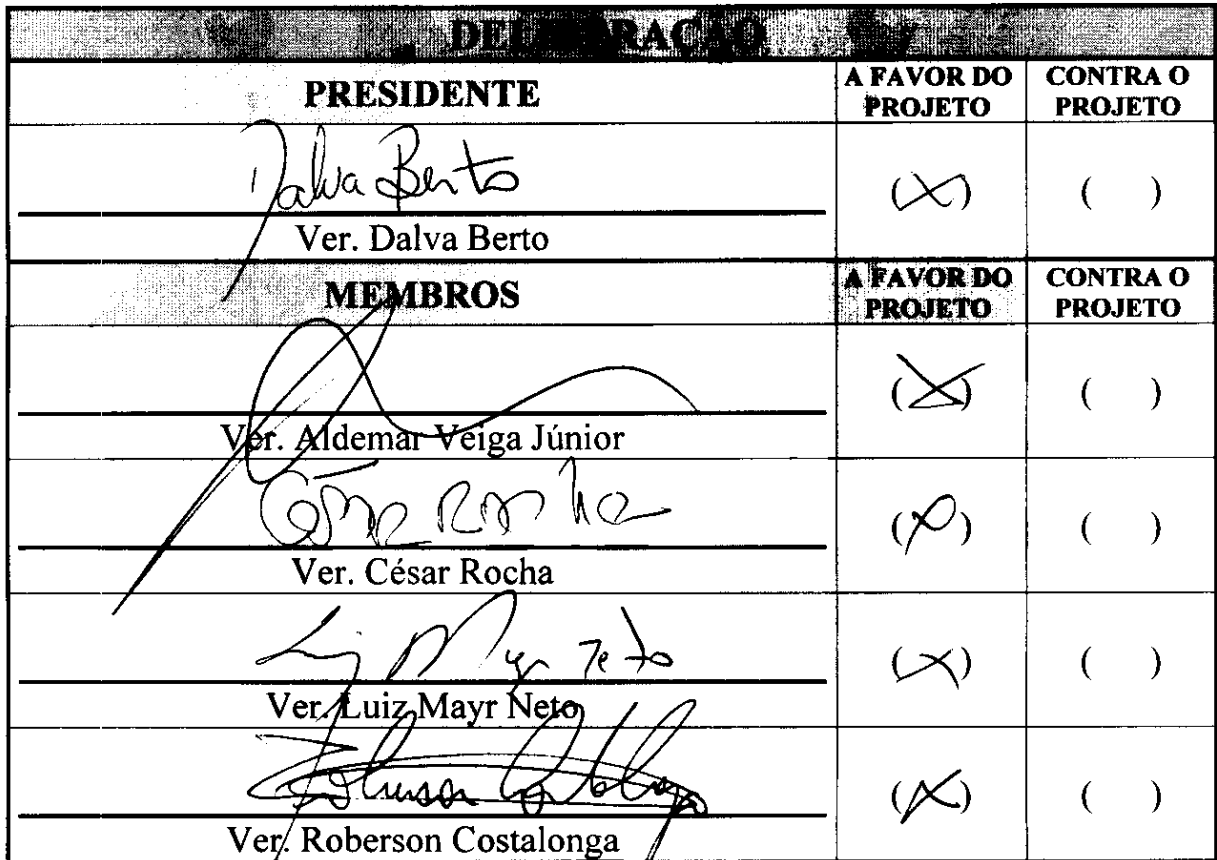 DELIBERAÇÃO
PRESIDENTE A FAVOR DO PROJETO CONTRA O PROJETO
Dalva Berto (X) ( )
Ver. Dalva Berto
MEMBROS A FAVOR DO PROJETO CONTRA O PROJETO
(X) ( )
Ver. Aldemar Veiga Júnior
César Rocha (X) ( )
Ver. César Rocha
Luiz Mayr Neto (X) ( )
Ver. Luiz Mayr Neto
Roberson Costalonga (X) ( )
Ver. Roberson Costalonga